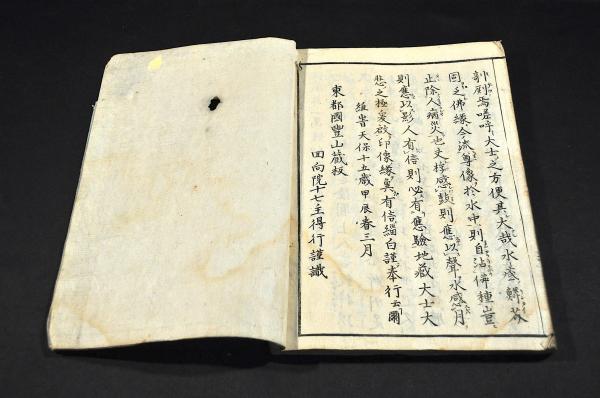 剞劂焉嗟呼大士之方便其大哉水
因之佛緣今流尊像於水中則自沾佛種豈
止除人病災也文桴感鼓則應以聲水感月
則應以影人有信則必有應驗地藏大士大
悲之極爰啟印像緣冀有信緇白謹奉行云爾
維皆天保十五歲甲辰春三月
東都國豐山藏板
回向院十七主得行謹識